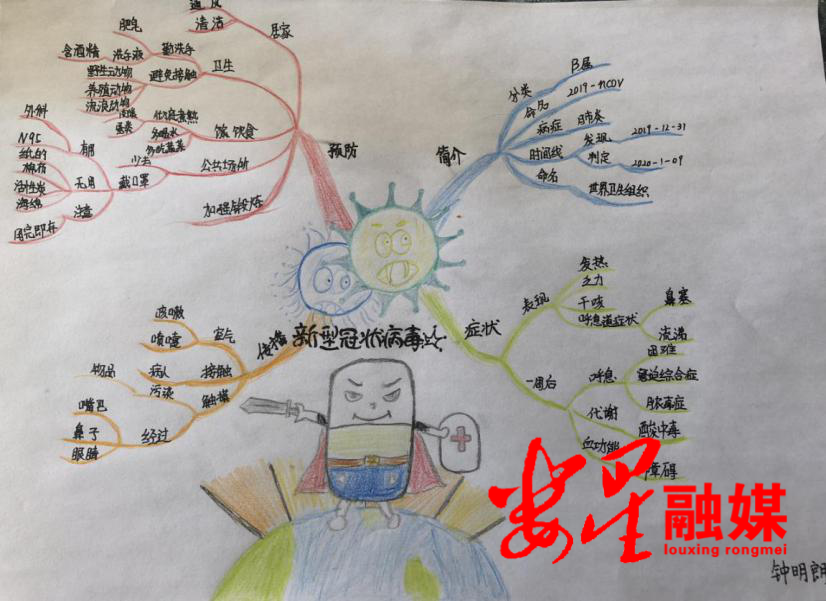 通风
清洁
居家
肥皂
含酒精
洗手液
勤洗手
野生动物
避免接触
卫生
养殖动物
流浪动物
外科
蛋类
多喝水
多吃蔬菜
饮食
N95
有用
少去
公共场所
棉布
无用
戴口罩
活性炭
海绵
注意
用完即弃
加强锻炼
预防
简介
分类
β属
命名
2019-nCOV
病症
肺炎
时间线
发现
2019-12-31
判定
2020-1-09
命名
世界卫生组织
咳嗽
喷嚏
空气
传播
物品
病人
接触
污染
触摸
嘴巴
鼻子
眼睛
经过
新型冠状病毒
症状
表现
发热
乏力
干咳
呼吸道症状
鼻塞
流涕
一周后
呼吸
困难
窘迫综合症
脓毒症
代谢
酸中毒
血功能
障碍
娄星融媒
louxing rongmei
钟明朗